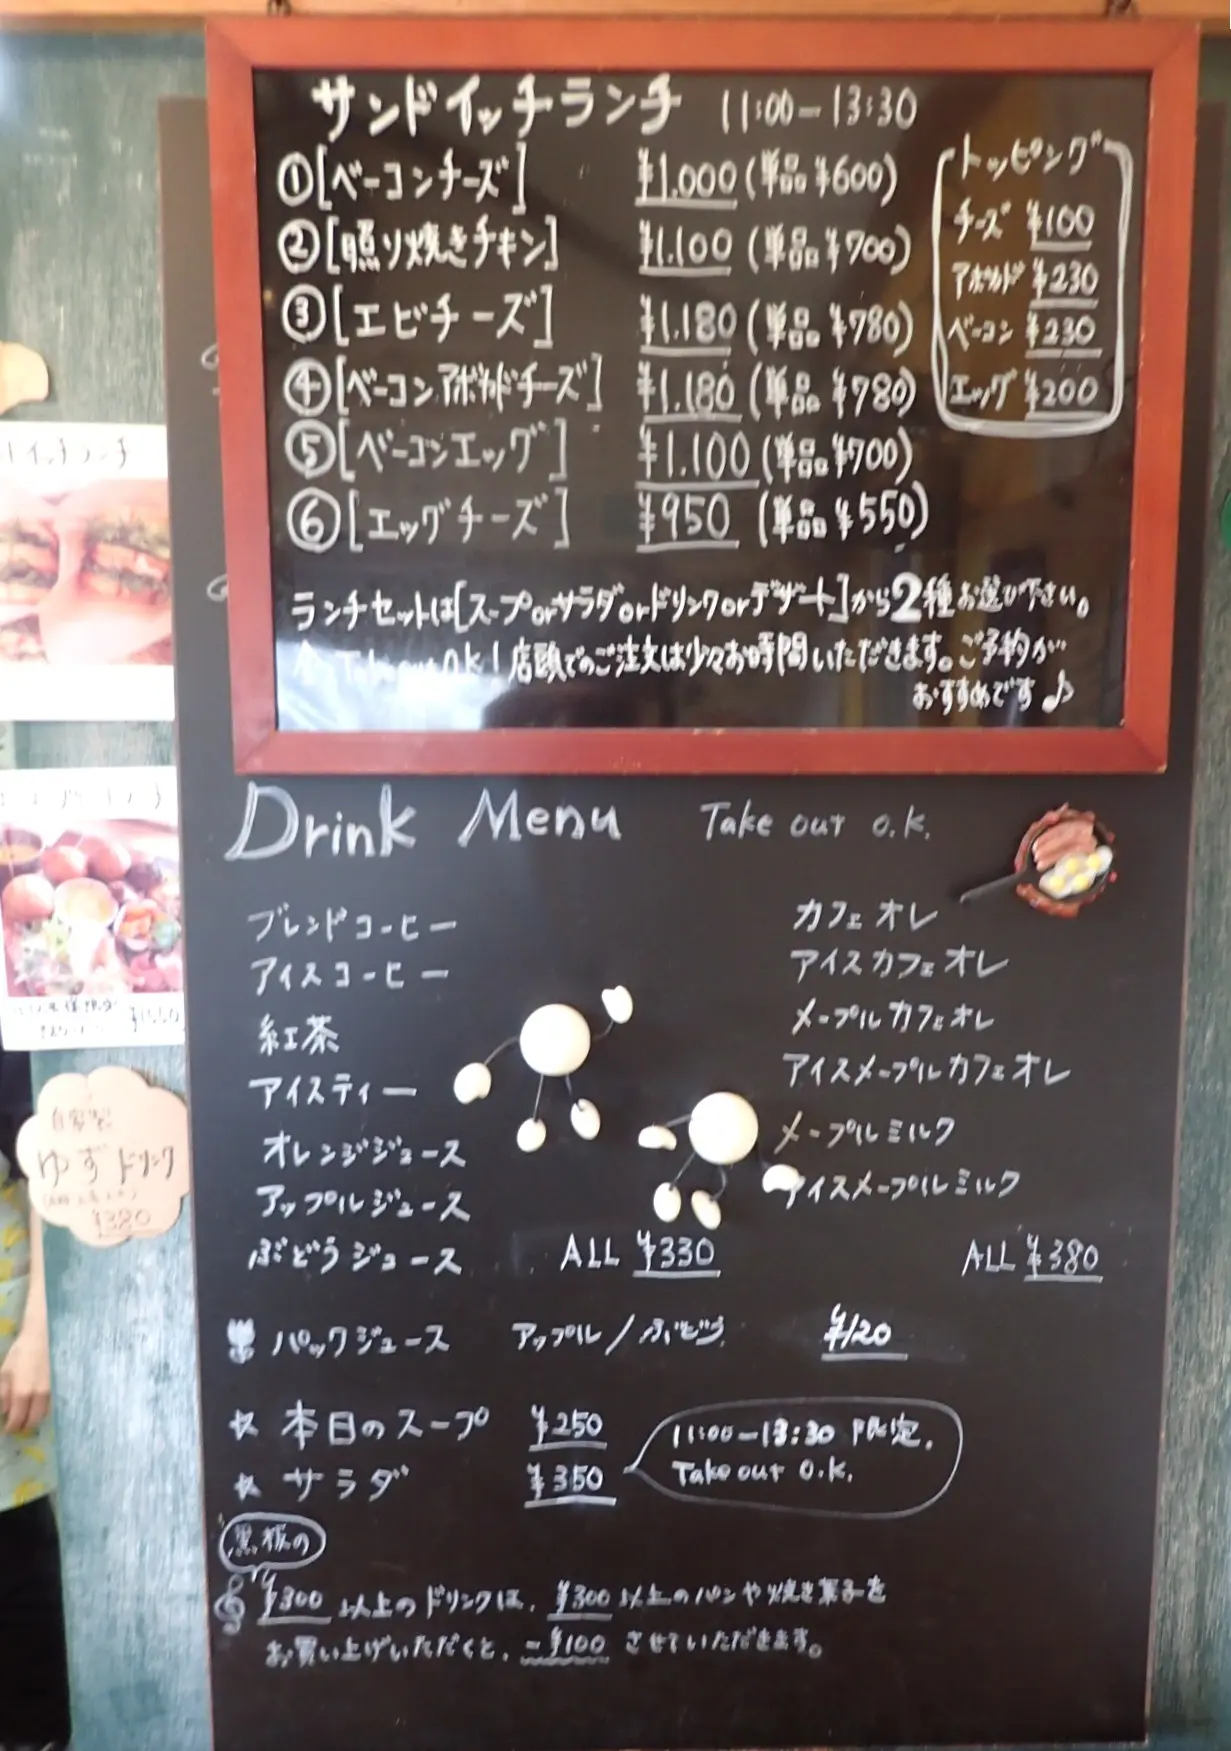 サンドイッチランチ 11:00-13:30
①[ベーコンチーズ] ¥1.000(単品¥600)
②[照り焼きチキン] ¥1.100(単品¥700)
③[エビチーズ] ¥1.180(単品¥780)
④[ベーコンアボカドチーズ] ¥1.180(単品¥780)
⑤[ベーコンエッグ] ¥1.100(単品¥700)
⑥[エッグチーズ] ¥950(単品¥550)
トッピング
チーズ ¥100
アボカド ¥230
ベーコン ¥230
エッグ ¥200
ランチセットは[スープorサラダorドリンクorデザート]から2種お選び下さい。
Take out OK!店頭でのご注文は少々お時間いただきます。ご予約が
おすすめです♪
Drink Menu Take out o.k.
ブレンドコーヒー
アイスコーヒー
紅茶
アイスティー
オレンジジュース
アップルジュース
ぶどうジュース ALL ¥330
カフェオレ
アイスカフェオレ
メープルカフェオレ
アイスメープルカフェオレ
メープルミルク
アイスメープルミルク
ALL ¥380
パックジュース アップル/ぶどう ¥120
☆ 本日のスープ ¥250
☆ サラダ ¥350
11:00-13:30 限定.
Take out o.k.
黒板の
¥300 以上のドリンクは、¥300 以上のパンや焼き菓子を
お買い上げいただくと、-¥100 させていただきます。
イッチランチ
¥1550
自家製
ゆずドリンク
¥380